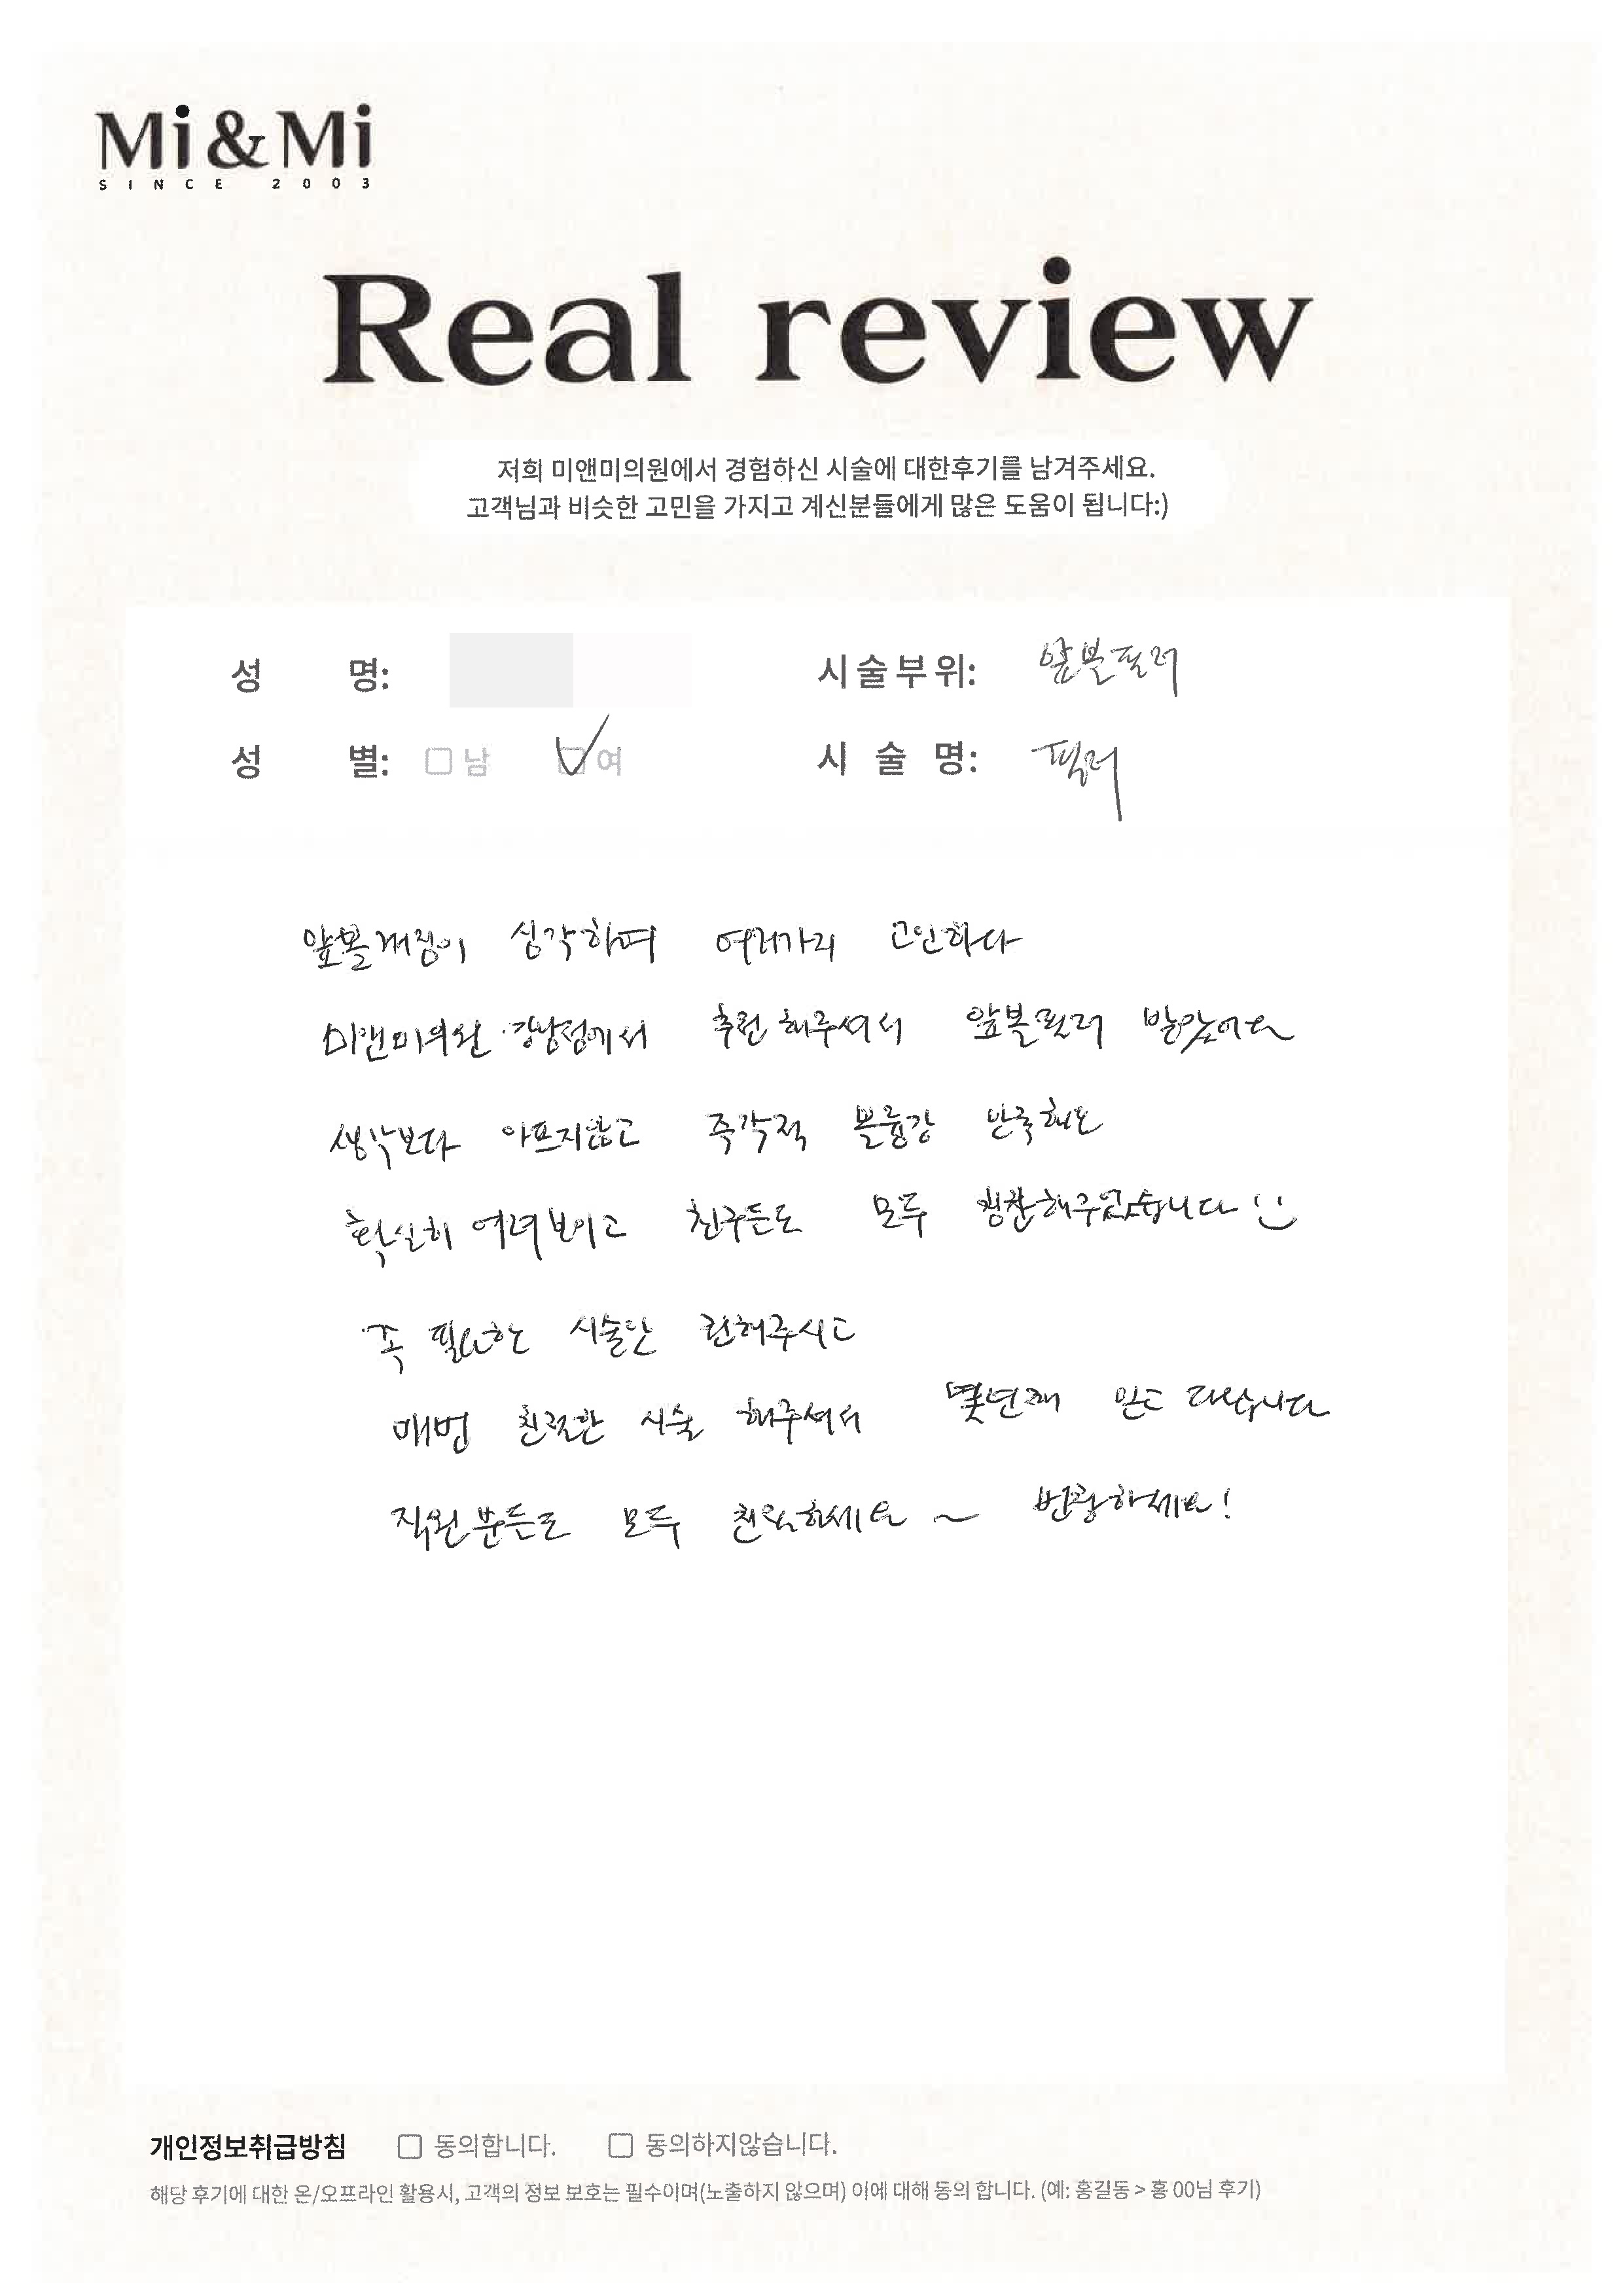 Mi&Mi
SINCE 2003
Real review
저희 미앤미의원에서 경험하신 시술에 대한후기를 남겨주세요.
고객님과 비슷한 고민을 가지고 계신분들에게 많은 도움이 됩니다:)
성 명: 시술부위: 앞볼필러
성 별: 남 여 시 술 명: 필러
앞볼꺼짐이 심각하여 여러가지 고민하다
미앤미의원 강남점에서 추천해주셔서 앞볼필러 받았어요
생각보다 아프지않고 즉각적 볼륨감
확실히 어려보이고 친구들도 모두 칭찬해주었습니다
꼭 필요한 시술만 권해주시고
매번 친절한 시술 해주셔서 몇년째 믿고 다닙니다
직원분들도 모두 친절하세요~ 번창하세요!
개인정보취급방침 동의합니다. 동의하지않습니다.
해당 후기에 대한 온/오프라인 활용시, 고객의 정보 보호는 필수이며(노출하지 않으며) 이에 대해 동의 합니다. (예: 홍길동 > 홍 00님 후기)